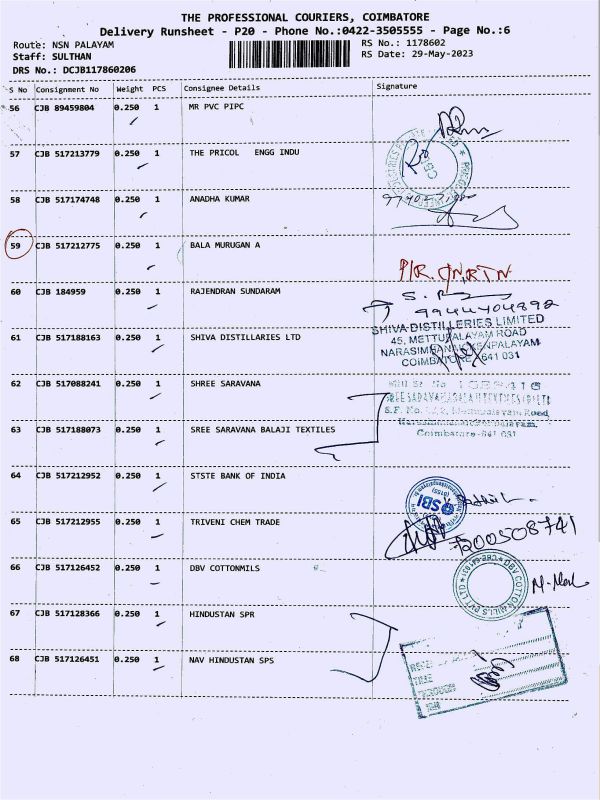 THE PROFESSIONAL COURIERS, COIMBATORE
Delivery Runsheet - P20 - Phone No.:0422-3505555 - Page No.:6
Route: NSN PALAYAM
RS No.: 1178602
Staff: SULTHAN
RS Date: 29-May-2023
DRS No.: DCJB117860206
S No Consignment No Weight PCS Consignee Details Signature
56 CJB 89459804 0.250 1 MR PVC PIPC
57 CJB 517213779 0.250 1 THE PRICOL ENGG INDU
58 CJB 517174748 0.250 1 ANADHA KUMAR
59 CJB 517212775 0.250 1 BALA MURUGAN A
60 CJB 184959 0.250 1 RAJENDRAN SUNDARAM
9944404892
61 CJB 517188163 0.250 1 SHIVA DISTILLARIES LTD
SHIVA DISTILLERIES LIMITED
45, METTUPALAYAM ROAD
COIMBATORE 641 031
62 CJB 517088241 0.250 1 SHREE SARAVANA
63 CJB 517188073 0.250 1 SREE SARAVANA BALAJI TEXTILES
Coimbatore-641 031
64 CJB 517212952 0.250 1 STSTE BANK OF INDIA
SBI
65 CJB 517212955 0.250 1 TRIVENI CHEM TRADE
7200508741
66 CJB 517126452 0.250 1 DBV COTTONMILS
DBV COTTON MILLS PVT LTD
67 CJB 517128366 0.250 1 HINDUSTAN SPR
68 CJB 517126451 0.250 1 NAV HINDUSTAN SPS
TIME